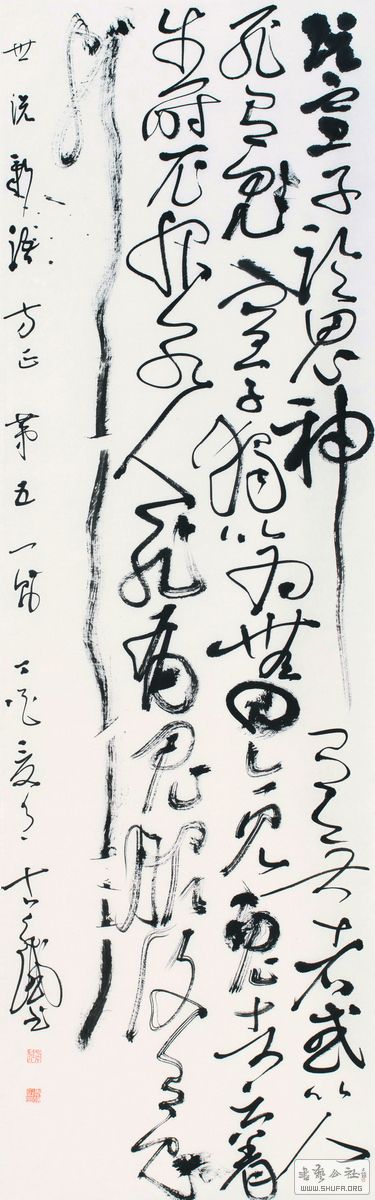 阮宣子論鬼神有無者或以人
死有鬼宣子獨以為無曰今見鬼者云著
生時衣服若人死有鬼服復有鬼
邪
世说新語方正第五一節
書法公社
WWW.SHUFA.ORG